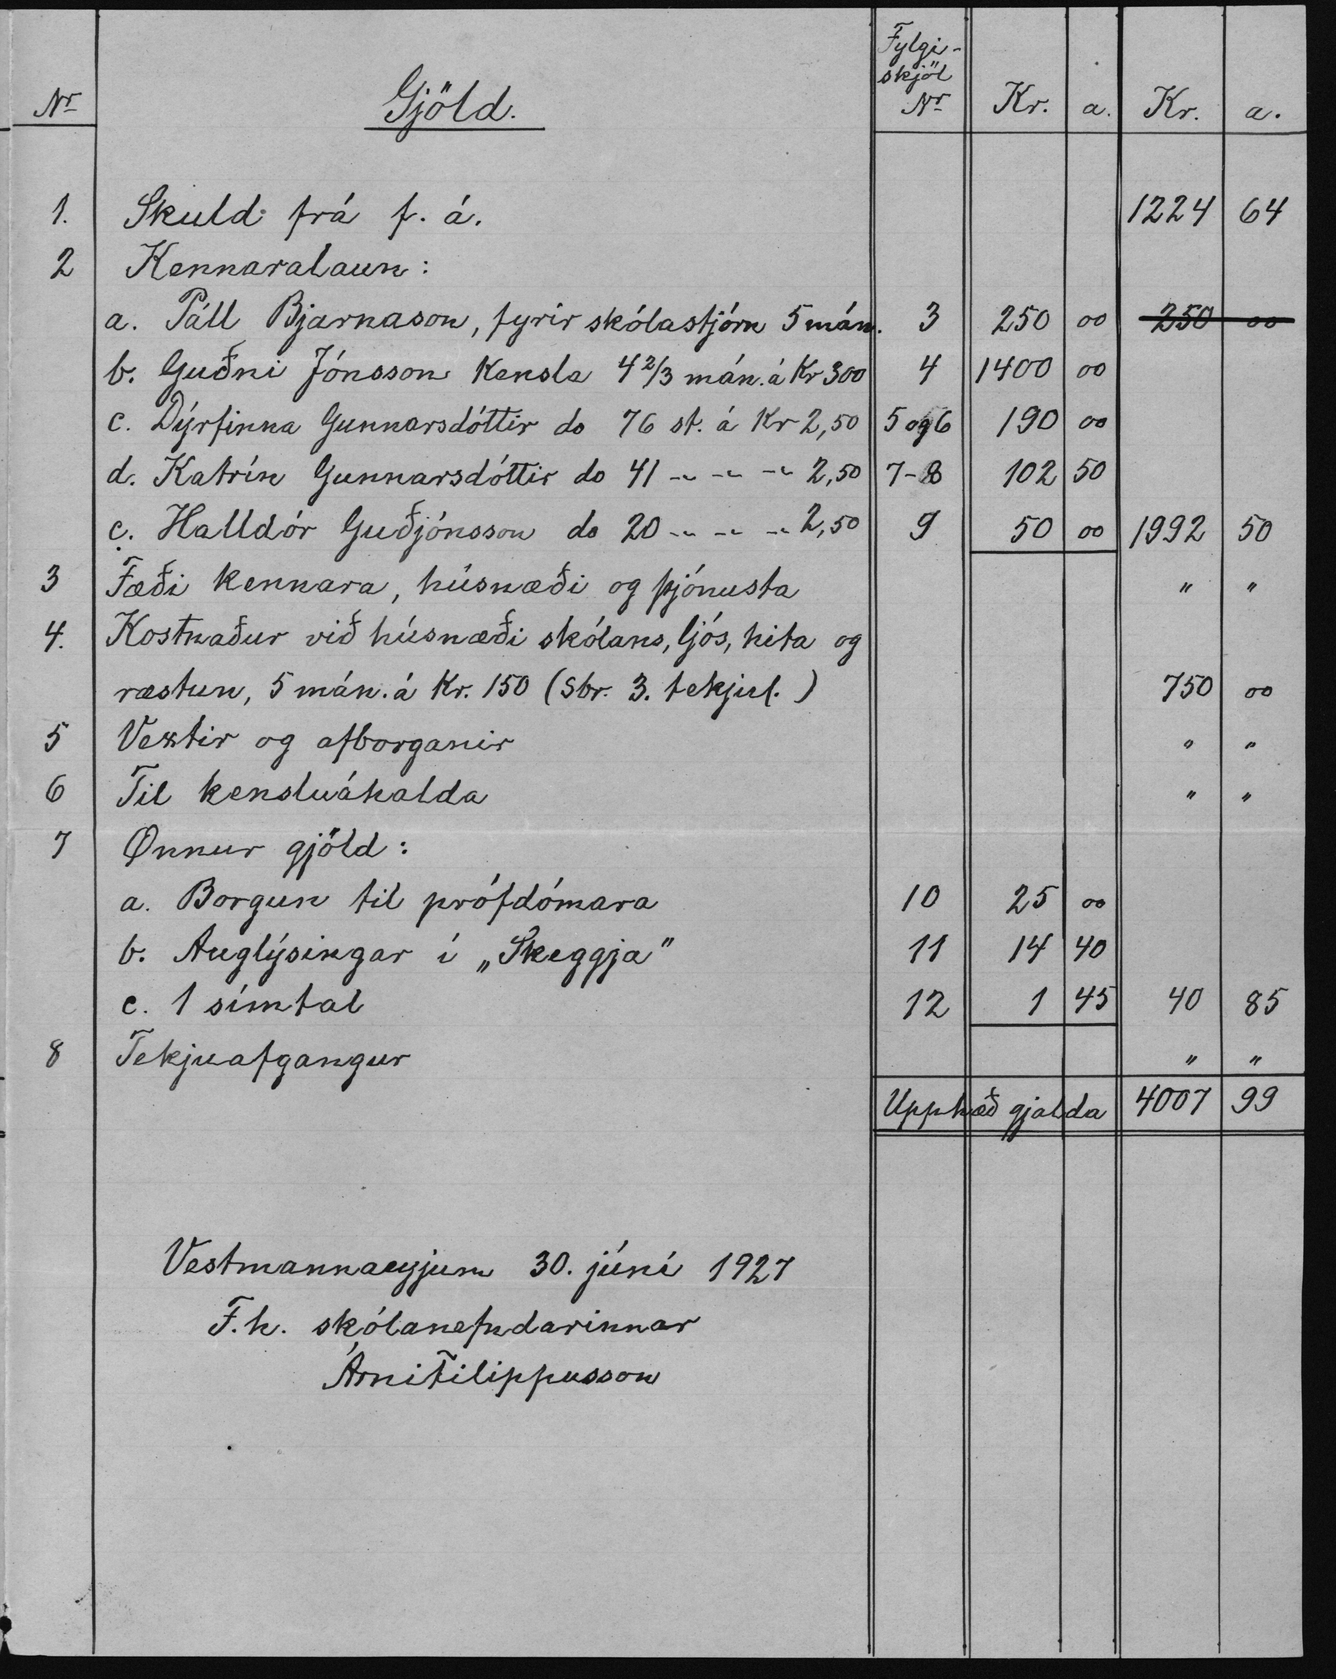 Nr Gjöld. Fylgi-skjöl Nr Kr. a. Kr. a.
1. Skuld frá f. á. 1224 64
2 Kennaralaun:
a. Páll Bjarnason, fyrir skólastjórn 5 mán. 3 250 00 250 00
b. Guðni Jónsson Kensla 4 2/3 mán. á Kr 300 4 1400 00
c. Dýrfinna Gunnarsdóttir do 76 st. á Kr 2,50 5 og 6 190 00
d. Katrín Gunnarsdóttir do 41 -"- -"- -"- 2,50 7-8 102 50
e. Halldór Guðjónsson do 20 -"- -"- -"- 2,50 9 50 00 1992 50
3 Fæði kennara, húsnæði og þjónusta " "
4. Kostnaður við húsnæði skólans, ljós, hita og
ræstun, 5 mán. á Kr. 150 (sbr. 3. tekjul.) 750 00
5 Vextir og afborganir " "
6 Til kensluáhalda " "
7 Önnur gjöld:
a. Borgun til prófdómara 10 25 00
b. Auglýsingar í „Skeggja" 11 14 40
c. 1 símtal 12 1 45 40 85
8 Tekjuafgangur " "
Upphæð gjalda 4007 99
Vestmannaeyjum 30. júní 1927
F.h. skólanefndarinnar
Árni Filippusson